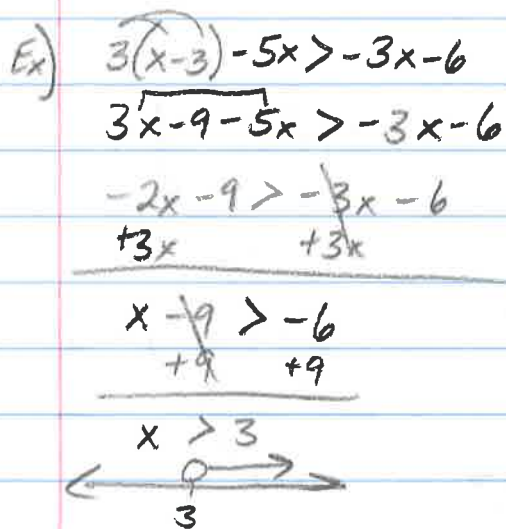 Ex) 3(x-3)-5x>-3x-6
3x-9-5x>-3x-6
-2x-9>-3x-6
+3x +3x
x-9>-6
+9 +9
x>3
3